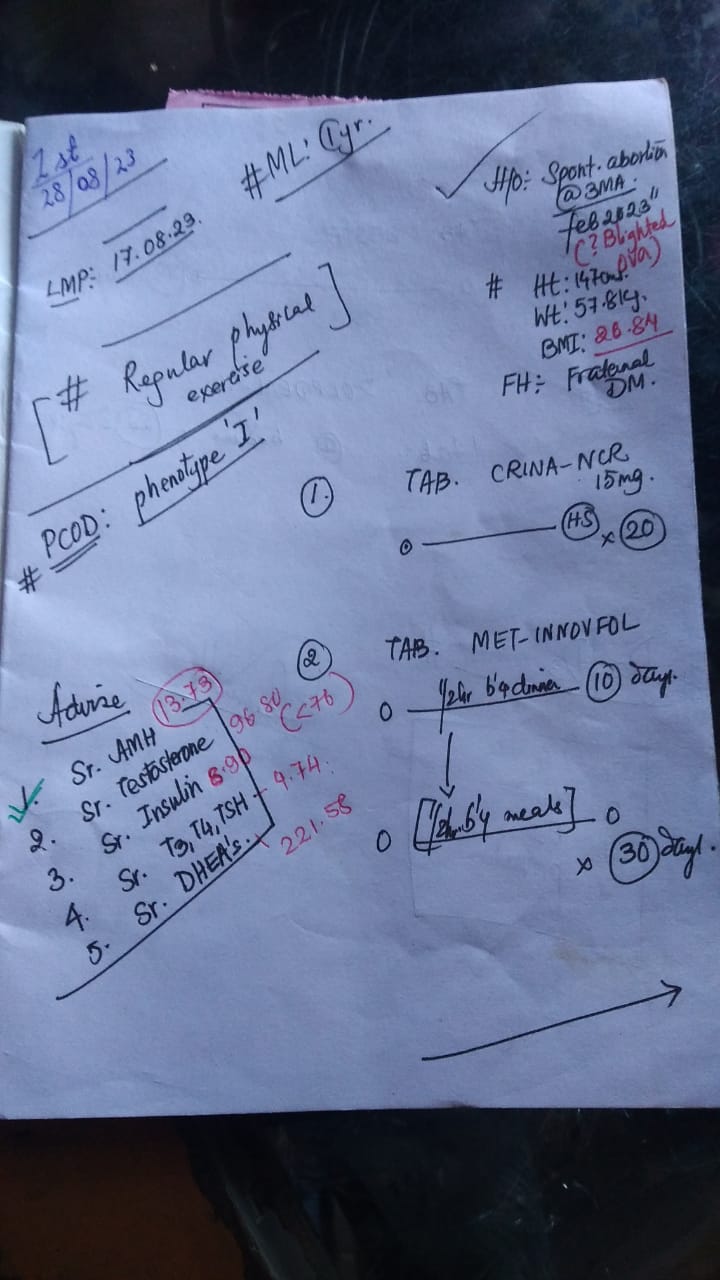 1st
28/08/23
# ML: 1yr.
LMP: 17.08.23.
H/o: Spont. abortion
@ 3MA.
feb 2023"
(? Blighted
ova)
# Ht: 147cms.
Wt: 57.8kg.
BMI: 26.84
FH:- Fraternal
DM.
[# Regular physical
exercise]
# PCOD: phenotype 'I'
1. TAB. CRINA-NCR
15mg.
0 HS x 20
2 TAB. MET-INNOVFOL
0 1/2hr b'4 dinner 10 days.
0 [1/2hr. b'4 meals] 0
x 30 days.
Advise
1. Sr. AMH 13.73
2. Sr. Testosterone 96.80 (<76)
3. Sr. Insulin 8.90
4. Sr. T3, T4, TSH 4.74.
5. Sr. DHEA's. 221.58